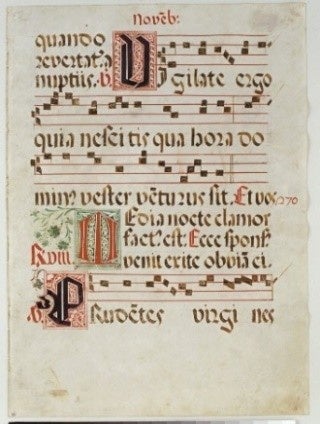 Novẽb:
quando
revertat. a
nuptiis. V. Vigilate ergo
quia nescitis qua hora do
minꝰ vester vẽturus sit. Et vos 270
Media nocte clamor
factꝰ est. Ecce sponsꝰ
Rviii. venit exite obviã ei.
V. Prudẽtes virgi nes